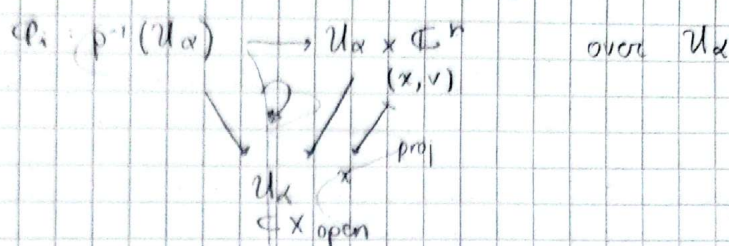 φᵢ : p⁻¹(Uα) → Uα × ℂⁿ over Uα
(x, v)
proj
x
Uα
⊂ X open